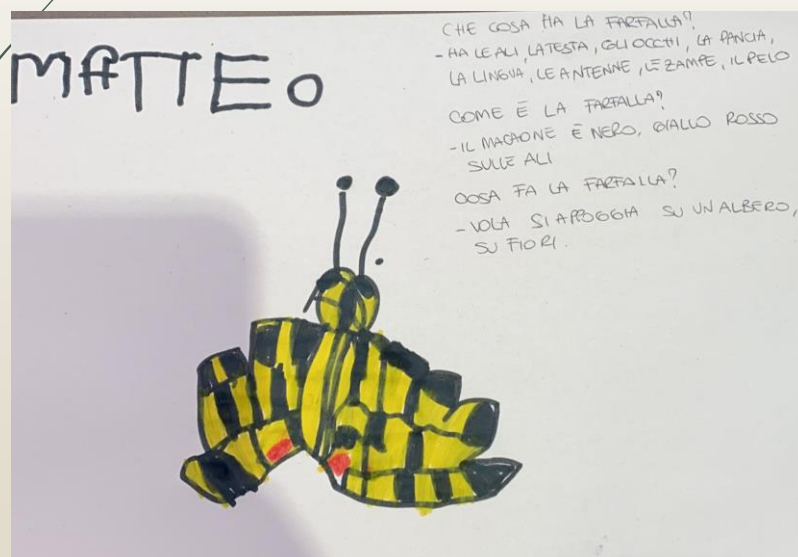 MATTEO
CHE COSA HA LA FARFALLA?
- HA LE ALI, LA TESTA, GLI OCCHI, LA PANCIA,
LA LINGUA, LE ANTENNE, LE ZAMPE, IL PELO
COME È LA FARFALLA?
- IL MACAONE È NERO, GIALLO ROSSO
SULLE ALI
COSA FA LA FARFALLA?
- VOLA SI APPOGGIA SU UN ALBERO,
SU FIORI.